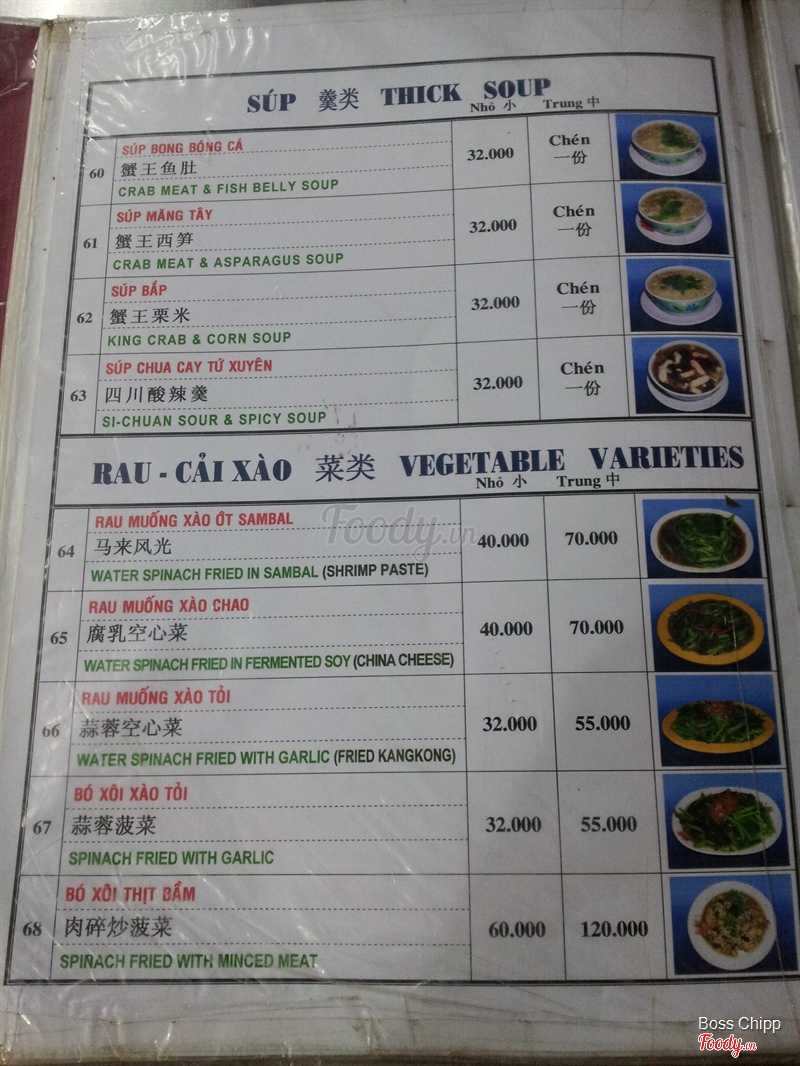 SÚP 羹类 THICK SOUP
Nhỏ 小 Trung 中
60
SÚP BONG BÓNG CÁ
蟹王鱼肚
CRAB MEAT & FISH BELLY SOUP
32.000
Chén
一份
61
SÚP MĂNG TÂY
蟹王西笋
CRAB MEAT & ASPARAGUS SOUP
32.000
Chén
一份
62
SÚP BẮP
蟹王栗米
KING CRAB & CORN SOUP
32.000
Chén
一份
63
SÚP CHUA CAY TỨ XUYÊN
四川酸辣羹
SI-CHUAN SOUR & SPICY SOUP
32.000
Chén
一份
RAU - CẢI XÀO 菜类 VEGETABLE VARIETIES
Nhỏ 小 Trung 中
64
RAU MUỐNG XÀO ỚT SAMBAL
马来风光
WATER SPINACH FRIED IN SAMBAL (SHRIMP PASTE)
40.000
70.000
65
RAU MUỐNG XÀO CHAO
腐乳空心菜
WATER SPINACH FRIED IN FERMENTED SOY (CHINA CHEESE)
40.000
70.000
66
RAU MUỐNG XÀO TỎI
蒜蓉空心菜
WATER SPINACH FRIED WITH GARLIC (FRIED KANGKONG)
32.000
55.000
67
BÓ XÔI XÀO TỎI
蒜蓉菠菜
SPINACH FRIED WITH GARLIC
32.000
55.000
68
BÓ XÔI THỊT BẦM
肉碎炒菠菜
SPINACH FRIED WITH MINCED MEAT
60.000
120.000
Foody.vn
Boss Chipp
Foody.vn